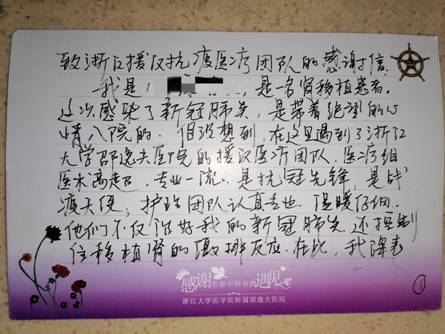 致浙江援汉抗疫医疗团队的感谢信
我是，是一名肾移植患者，
这次感染了新冠肺炎，是带着绝望的心
情入院的。但没想到，在这里遇到了浙江
大学邵逸夫医院的援汉医疗团队。医疗组
医术高超，专业一流，是抗冠先锋，是战
疫天使，护理团队认真专业，温暖仔细。
他们不仅治好我的新冠肺炎，还控制
住移植肾的排斥反应。在此，我
感谢生命中所有的遇见
浙江大学医学院附属邵逸夫医院
①